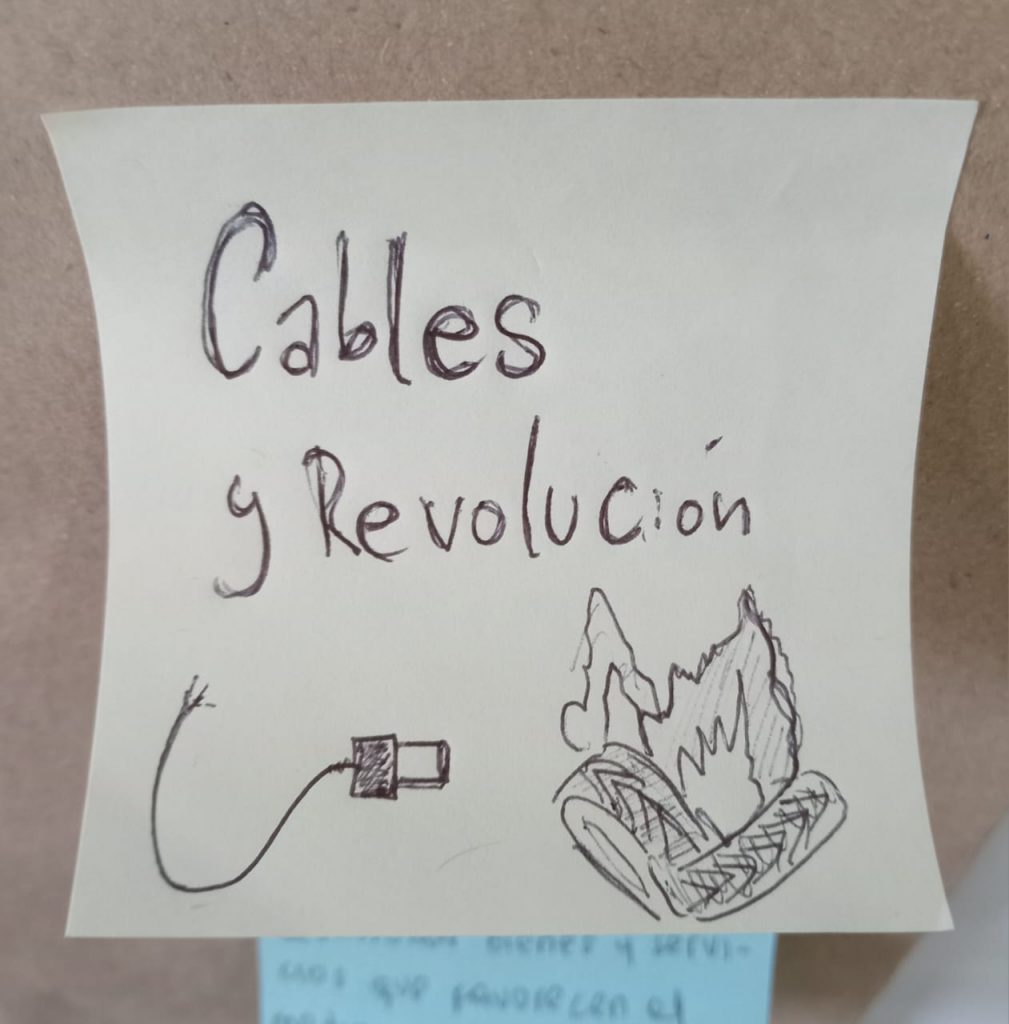 Cables
y Revolución
bienes y servi-
cios que favorecen el